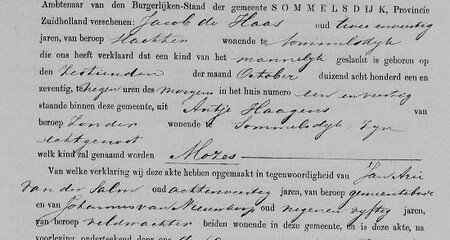 Ambtenaar van den Burgerlijken-Stand der gemeente SOMMELSDIJK, Provincie
Zuidholland verschenen: Jacob de Haas oud twee en veertig
jaren, van beroep slachter wonende te Sommelsdijk
die ons heeft verklaard dat een kind van het mannelijk geslacht is geboren op
den zestienden der maand October duizend acht honderd een en
zeventig, te negen uren des morgens in het huis numero een en veertig
staande binnen deze gemeente, uit Antje Haagens van
beroep zonder wonende te Sommelsdijk zijn
echtgenoot
welk kind zal genaamd worden Mozes
Van welke verklaring wij deze akte hebben opgemaakt in tegenwoordigheid van Jan Arie
van der Salm oud achtenveertig jaren, van beroep gemeentebode
en van Johannis van Nieuwburg oud negen en vijftig jaren,
van beroep veldwachter beiden wonende in deze gemeente, en is deze akte, na
voorlezing onderteekend door ons